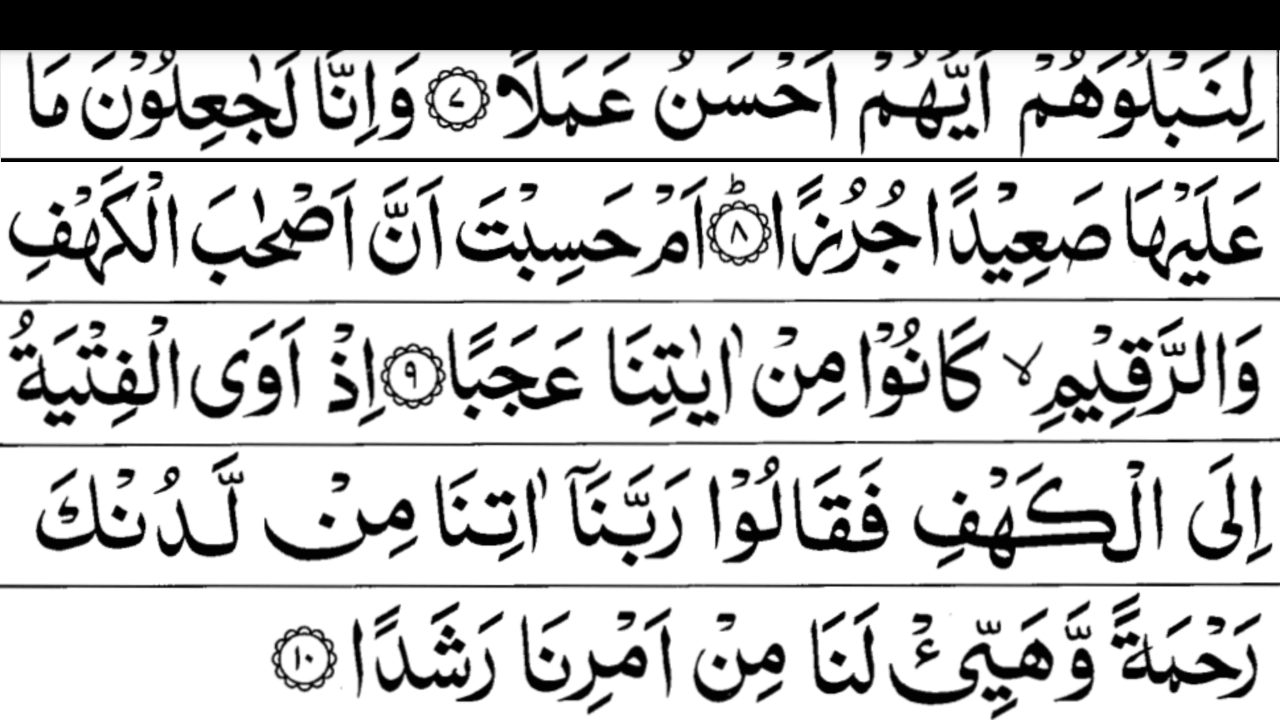 لِنَبْلُوَهُمْ اَيُّهُمْ اَحْسَنُ عَمَلًا ۷ وَاِنَّا لَجٰعِلُوْنَ مَا
عَلَيْهَا صَعِيْدًا جُرُزًا ؕ ۸ اَمْ حَسِبْتَ اَنَّ اَصْحٰبَ الْكَهْفِ
وَالرَّقِيْمِ ۙ كَانُوْا مِنْ اٰيٰتِنَا عَجَبًا ۹ اِذْ اَوَى الْفِتْيَةُ
اِلَى الْكَهْفِ فَقَالُوْا رَبَّنَآ اٰتِنَا مِنْ لَّدُنْكَ
رَحْمَةً وَّهَيِّئْ لَنَا مِنْ اَمْرِنَا رَشَدًا ۱۰